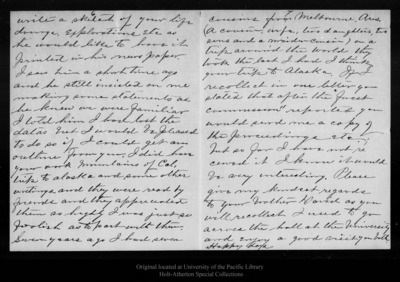 write a sketch of your life
doings, explorations etc as
he would like to have it
printed in his news paper.
I saw him a short time ago
and he still insisted on me
making some statements as
he knew we were familiar
I told him I have lost the
datas but I would be pleased
to do so if I could get an
outline from you, I did have
your work, mountains of Cal,
trip to alaska and some other
writings and they were read by
friends and they appreciated
them so highly I was just so
foolish as to part with them.
Seven years ago I had seven
cousins from Melbourne, Aus.
(a cousin, wife, two daughters, two
sons and a maiden cousin) on a
trip around the world they
took the last I had I think
your trip to Alaska. If I
recollect in one letter you
stated that after the forest
commission reported you
would send me a copy of
the proceedings etc
but so far I have not re
ceived it I know it would
be very interesting. Please
give my kindest regards
to your Brother David as you
will recollect I used to go
across the hall at the University
and enjoy a good visit you both
Happy
Original located at University of the Pacific Library
Holt-Atherton Special Collections